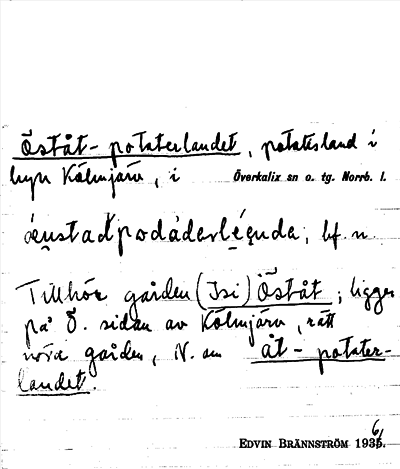 Öståt-potaterlandet, potatisland i
byn Kölmjärv, i Överkalix sn o. tg. Norrb. l.
óu̯stadpodáderlégnda, bf. n.
Tillhör gården (Isi) Öståt; ligger
på ö. sidan av Kölmjärv, rätt
nära gården, N. om åt-potater-
landet.
EDVIN BRÄNNSTRÖM 1936.